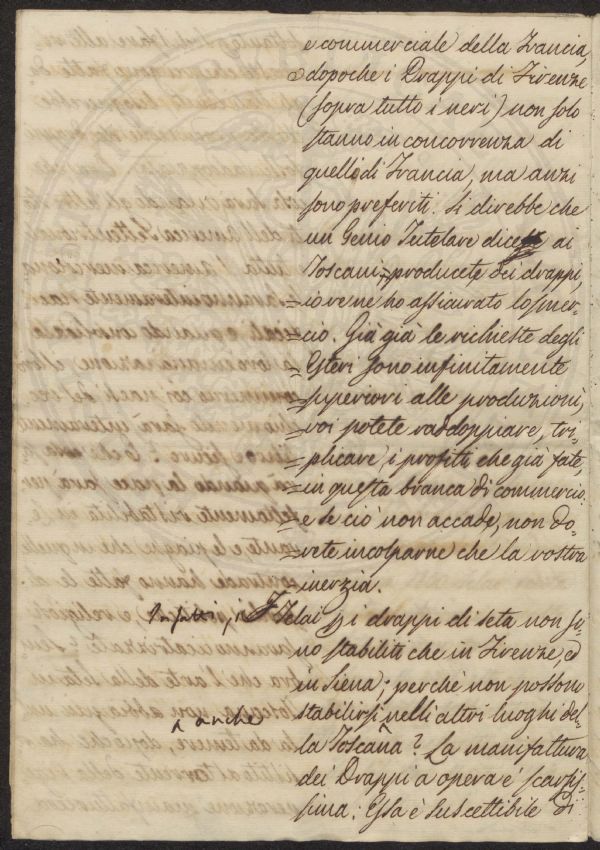 e commerciale della Francia,
dopoche i Drappi di Firenze
(sopra tutto i neri) non solo
stanno in concorrenza di
quelli di Francia, ma anzi
sono preferiti. Si direbbe che
un Genio Tutelare dice ai
Toscani, = producete dei drappi,
= io ve ne ho assicurato lo smer-
= cio. Già già le richieste degli
= Esteri sono infinitamente
= superiori alle produzioni,
= voi potete raddoppiare, tri-
= plicare, i profitti che già fate,
= in questa branca di commercio.
= e se ciò non accade, non do-
= vete incolparne che la vostra
= inerzia.
Infatti, i Telai pi drappi di seta non so-
no stabiliti che in Firenze, ed
in Siena; perchè non possono
stabilirsi anche nelli altri luoghi del-
la Toscana? La manifattura
dei Drappi a opera è scarsis-
sima: Essa è suscettibile di